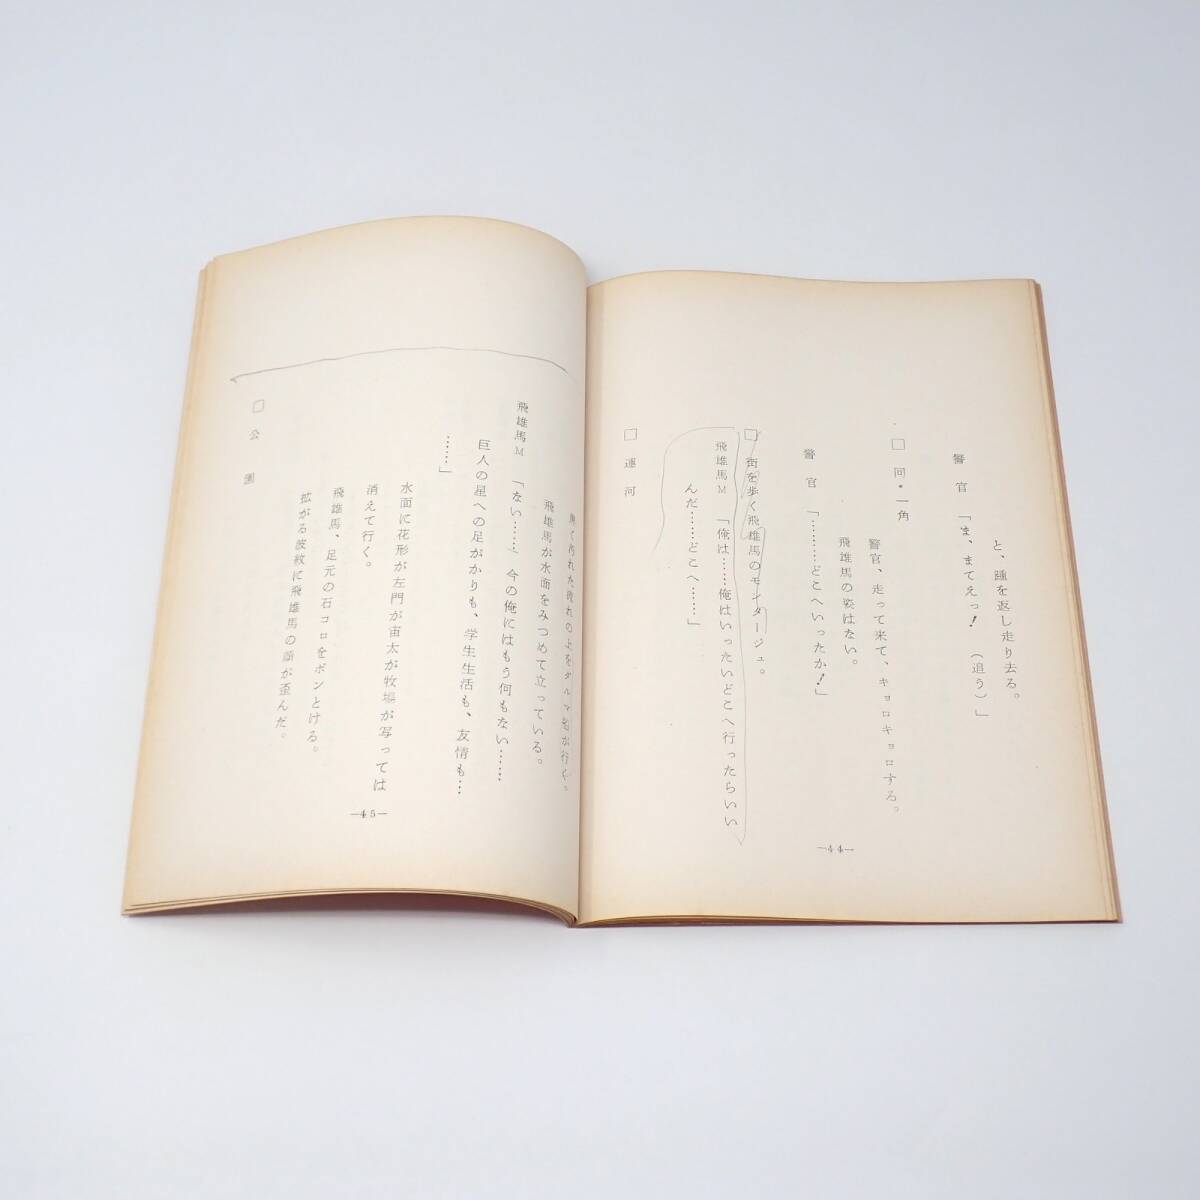 と、踵を返し走り去る。
警官「ま、まてえっ！（追う）」
□同・一角
警官、走って来て、キョロキョロする。
飛雄馬の姿はない。
警官「………どこへいったか！」
□街を歩く飛雄馬のモンタージュ。
飛雄馬M「俺は……俺はいったいどこへ行ったらいい
んだ……どこへ……」
□運河
—44—
て汚れた流れの上をダルマ船が行く。
飛雄馬が水面をみつめて立っている。
飛雄馬M「ない……今の俺にはもう何もない……
巨人の星への足がかりも、学生生活も、友情も…
……」
水面に花形が左門が宙太が牧場が写っては
消えて行く。
飛雄馬、足元の石コロをポンとける。
拡がる波紋に飛雄馬の顔が歪んだ。
□公園
—45—